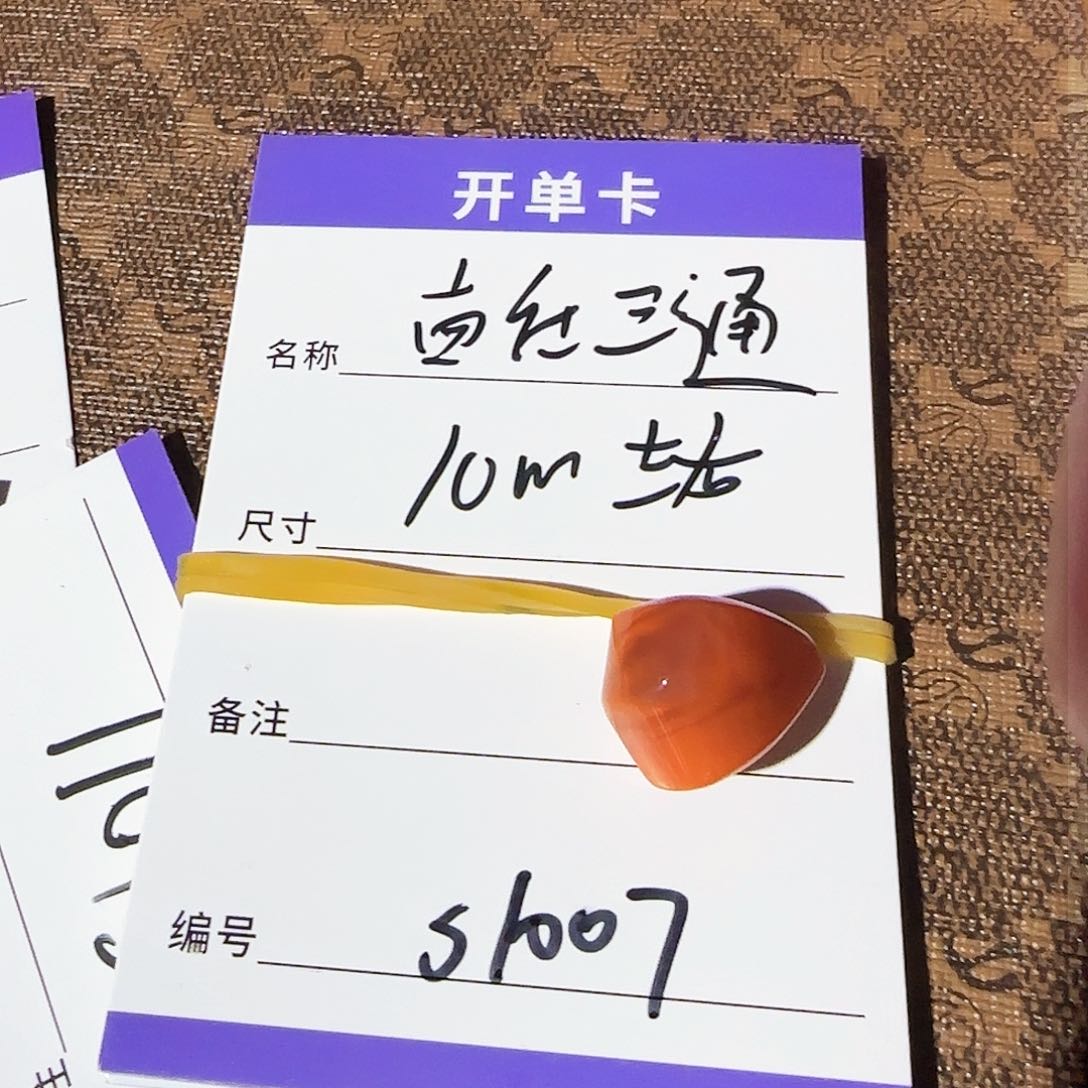 开单卡
名称 三通
尺寸 10m 左右
备注
编号 S1007